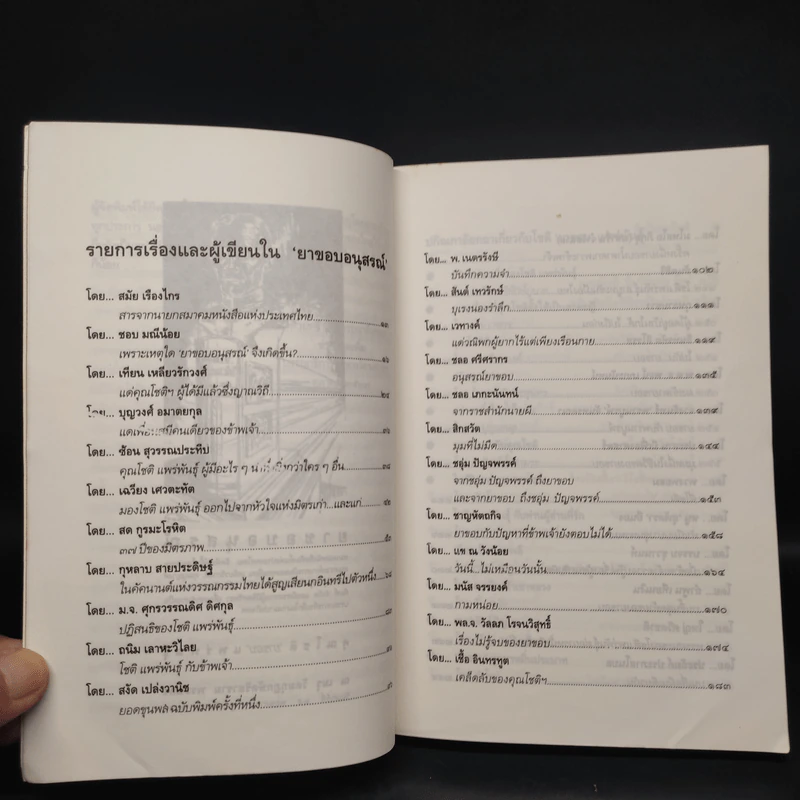 รายการเรื่องและผู้เขียนใน 'ยาขอบอนุสรณ์'
โดย... สมัย เรืองไกร
สารจากนายกสมาคมหนังสือแห่งประเทศไทย....................๑๓
โดย... ชอบ มณีน้อย
เพราะเหตุใด 'ยาขอบอนุสรณ์' จึงเกิดขึ้น?....................๑๖
โดย... เทียน เหลียวรักวงศ์
แด่คุณโชติฯ ผู้ได้มีแล้วซึ่งญาณวิถี....................๒๔
โดย... บุญวงศ์ อมาตยกุล
แด่เพื่อนเสมือนคนเดียวของข้าพเจ้า....................
โดย... ซ้อน สุวรรณประทีป
คุณโชติ แพร่พันธุ์ ผู้มีอะไร ๆ น่าทึ่งยิ่งกว่าใคร ๆ อื่น....................๓๘
โดย... เฉวียง เศวตะทัต
มองโชติ แพร่พันธุ์ ออกไปจากหัวใจแห่งมิตรเก่า...และแก่....................๔๒
โดย... สด กูรมะโรหิต
๓๗ ปีของมิตรภาพ....................๕๐
โดย... กุหลาบ สายประดิษฐ์
ในคัคนานต์แห่งวรรณกรรมไทยได้สูญเสียนกอินทรีไปตัวหนึ่ง....................๖๘
โดย... ม.จ. ศุกรวรรณดิศ ดิศกุล
ปฏิสนธิของโชติ แพร่พันธุ์....................
โดย... ถนิม เลาหะวิไลย
โชติ แพร่พันธุ์ กับข้าพเจ้า....................
โดย... สงัด เปล่งวานิช
ยอดขุนพล ฉบับพิมพ์ครั้งที่หนึ่ง....................
โดย... พ. เนตรรังษี
บันทึกความจำ....................๑๐๒
โดย... สันต์ เทวรักษ์
บุเรงนองรำลึก....................๑๑๑
โดย... เวทางค์
แด่วณิพกผู้ยากไร้แต่เพียงเรือนกาย....................๑๑๙
โดย... ชลอ ศรีศรากร
อนุสรณ์ยาขอบ....................๑๓๕
โดย... ชลอ เภกะนันทน์
จากราชสำนักนายผี....................๑๓๙
โดย... สิกสวัต
มุมที่ไม่มืด....................๑๔๔
โดย... ชอุ่ม ปัญจพรรค์
จากชอุ่ม ปัญจพรรค์ ถึงยาขอบ
และจากยาขอบ ถึงชอุ่ม ปัญจพรรค์....................๑๕๓
โดย... ชาญหัตถกิจ
ยาขอบกับปัญหาที่ข้าพเจ้ายังตอบไม่ได้....................๑๕๘
โดย... แข ณ วังน้อย
วันนี้...ไม่เหมือนวันนั้น....................๑๖๔
โดย... มนัส จรรยงค์
กามหน่อย....................๑๗๐
โดย... พล.จ. วัลลภ โรจนวิสุทธิ์
เรื่องไม่รู้จบของยาขอบ....................๑๗๔
โดย... เชื้อ อินทรทูต
เคล็ดลับของคุณโชติฯ....................๑๘๓